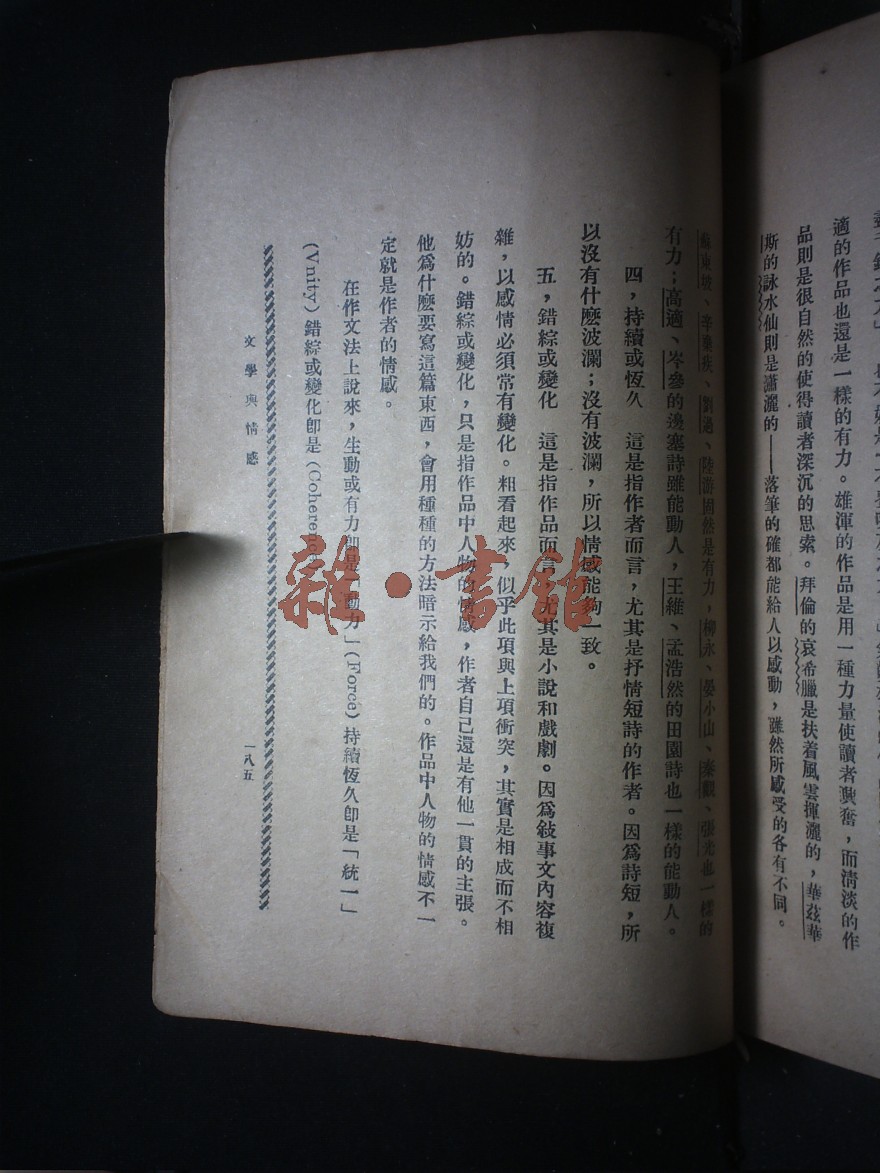 適的作品也還是一樣的有力。雄渾的作品是用一種力量使讀者興奮，而清淡的作
品則是很自然的使得讀者深沉的思索。拜倫的哀希臘是扶着風雲揮灑的，華茲華
斯的詠水仙則是瀟灑的——落筆的確都能給人以感動，雖然所感受的各有不同。
蘇東坡、辛棄疾、劉過、陸游固然是有力，柳永、晏小山、秦觀、張先也一樣的
有力；高適、岑參的邊塞詩雖能動人，王維、孟浩然的田園詩也一樣的能動人。
四，持續或恆久　這是指作者而言，尤其是抒情短詩的作者。因爲詩短，所
以沒有什麽波瀾；沒有波瀾，所以情感能夠一致。
五，錯綜或變化　這是指作品而言，尤其是小說和戲劇。因爲敍事文內容複
雜，以感情必須常有變化。粗看起來，似乎此項與上項衝突，其實是相成而不相
妨的。錯綜或變化，只是指作品中人物的情感，作者自己還是有他一貫的主張。
他爲什麽要寫這篇東西，會用種種的方法暗示給我們的。作品中人物的情感不一
定就是作者的情感。
在作文法上說來，生動或有力卽是「動力」(Force)持續恆久卽是「統一」
(Vnity)錯綜或變化卽是(Coherence
文學與情感
一八五
雜·書館